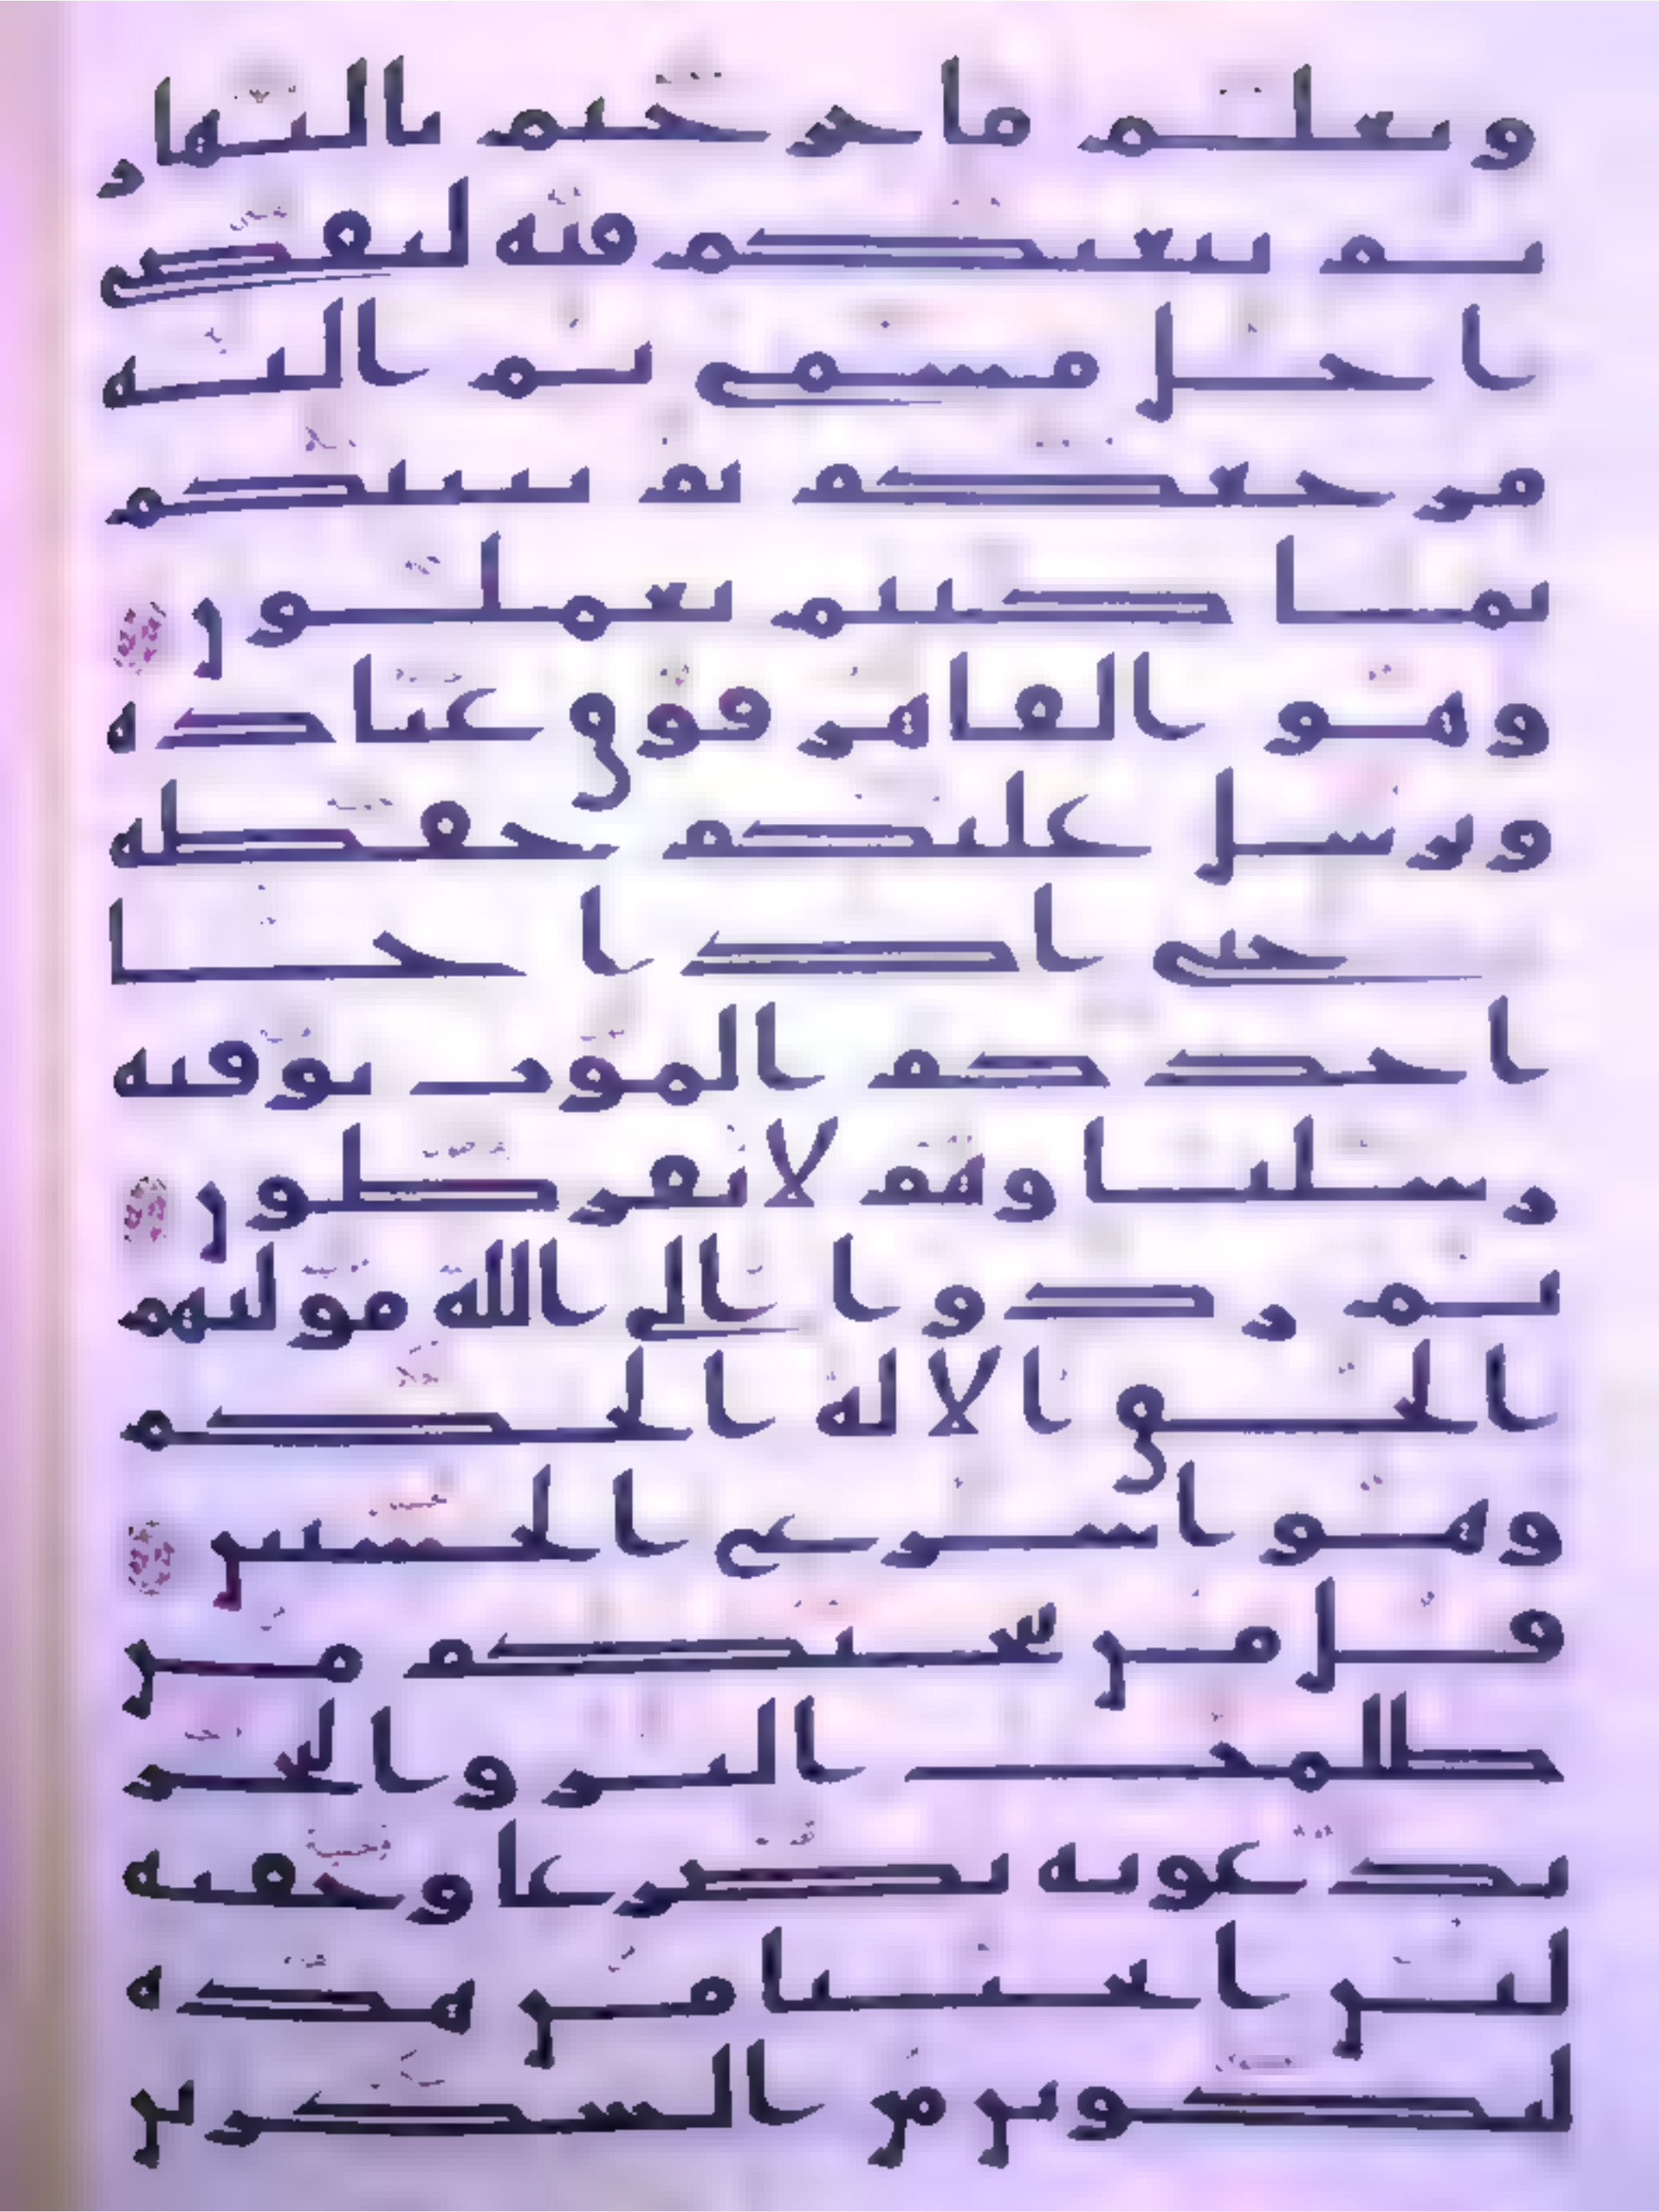 ويعلم ما جرحتم بالنهار
ثم يبعثكم فيه ليقضى
اجل مسمى ثم اليه
مرجعكم ثم ينبيكم
بما كنتم تعملون
وهو القاهر فوق عباده
ويرسل عليكم حفظه
حتى اذا جا
احدكم الموت توفته
رسلنا وهم لا يفرطون
ثم ردوا الى الله موليهم
الحق الا له الحكم
وهو اسرع الحسبين
قل من ينجيكم من
ظلمت البر والبحر
تدعونه تضرعا وخفيه
لين انجينا من هذه
لنكونن من الشكرين